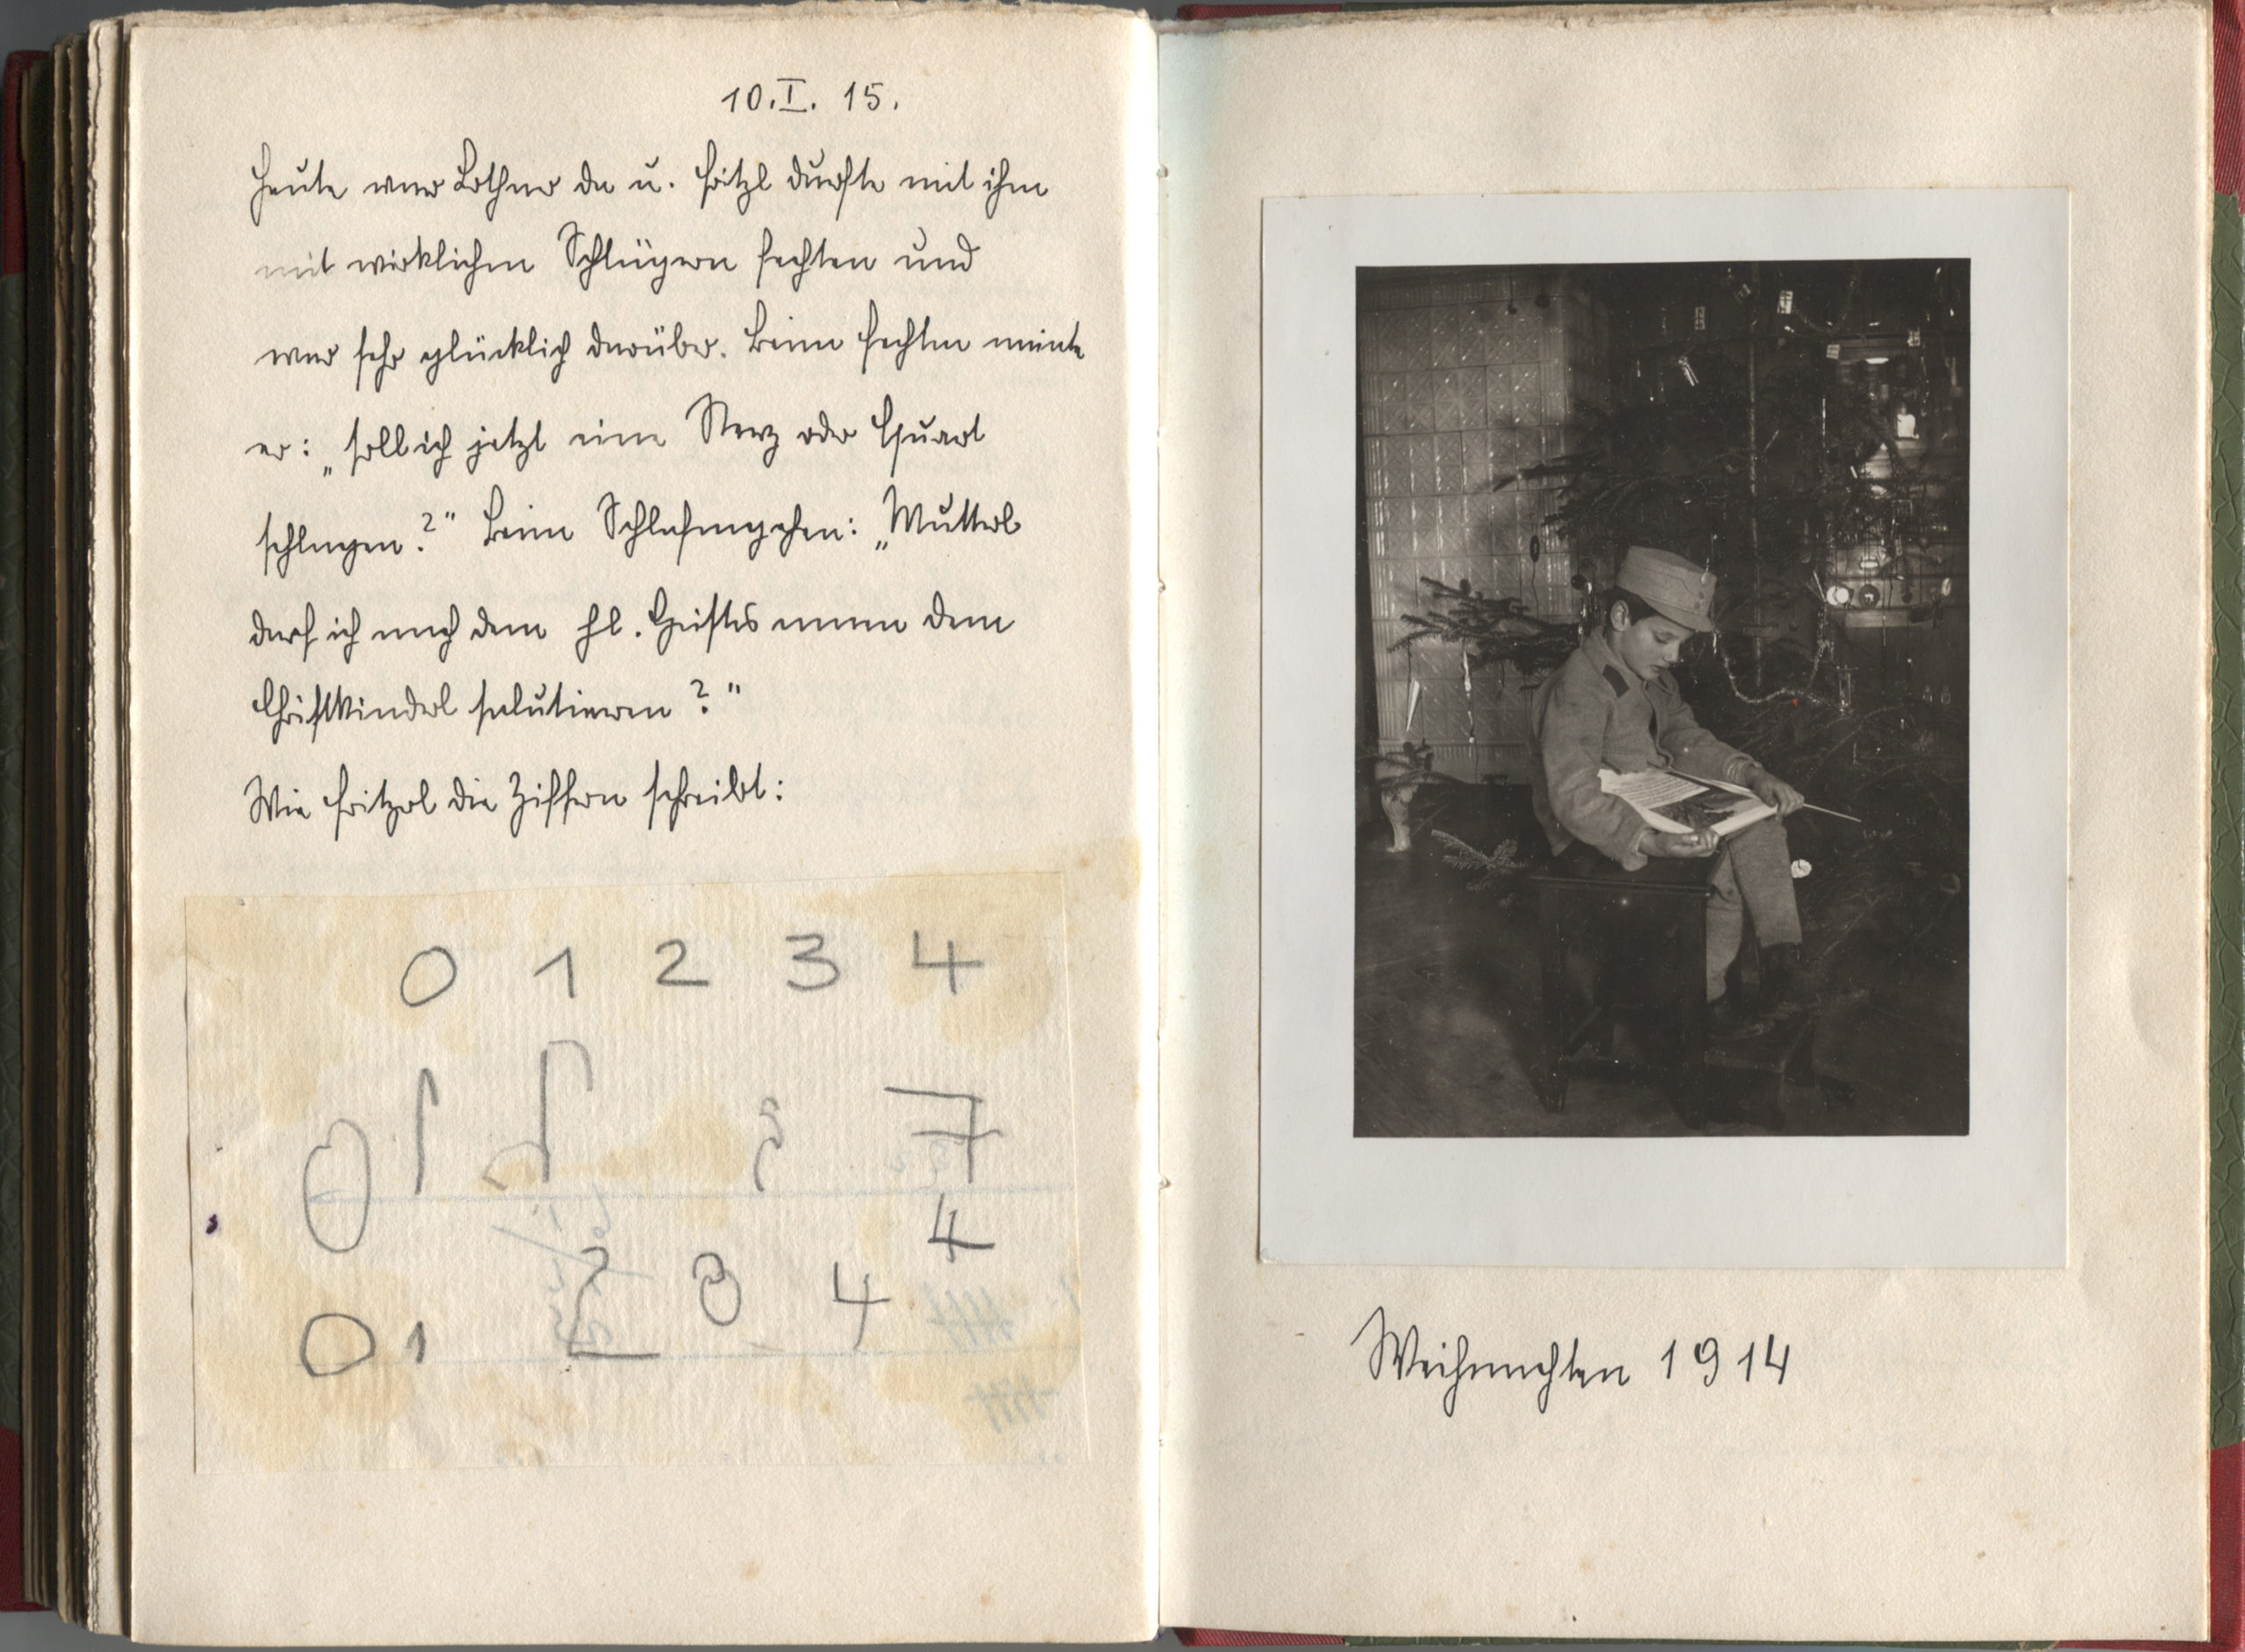 10.I. 15.
Heute war Lothar da u. Fritzl durfte mit ihm
mit wirklichen Schlägern fechten und
war sehr glücklich darüber. Beim Fechten meinte
er: „soll ich jetzt eine Sterz oder Quart
schlagen?" Beim Schlafengehen: „Mutterl
darf ich nach dem hl. Geistes amen dem
Christkinderl salutieren?"
Wie Fritzerl die Ziffern schreibt:
0 1 2 3 4
0 1 2 3 7
4
0 1 2 3 4
Weihnachten 1914